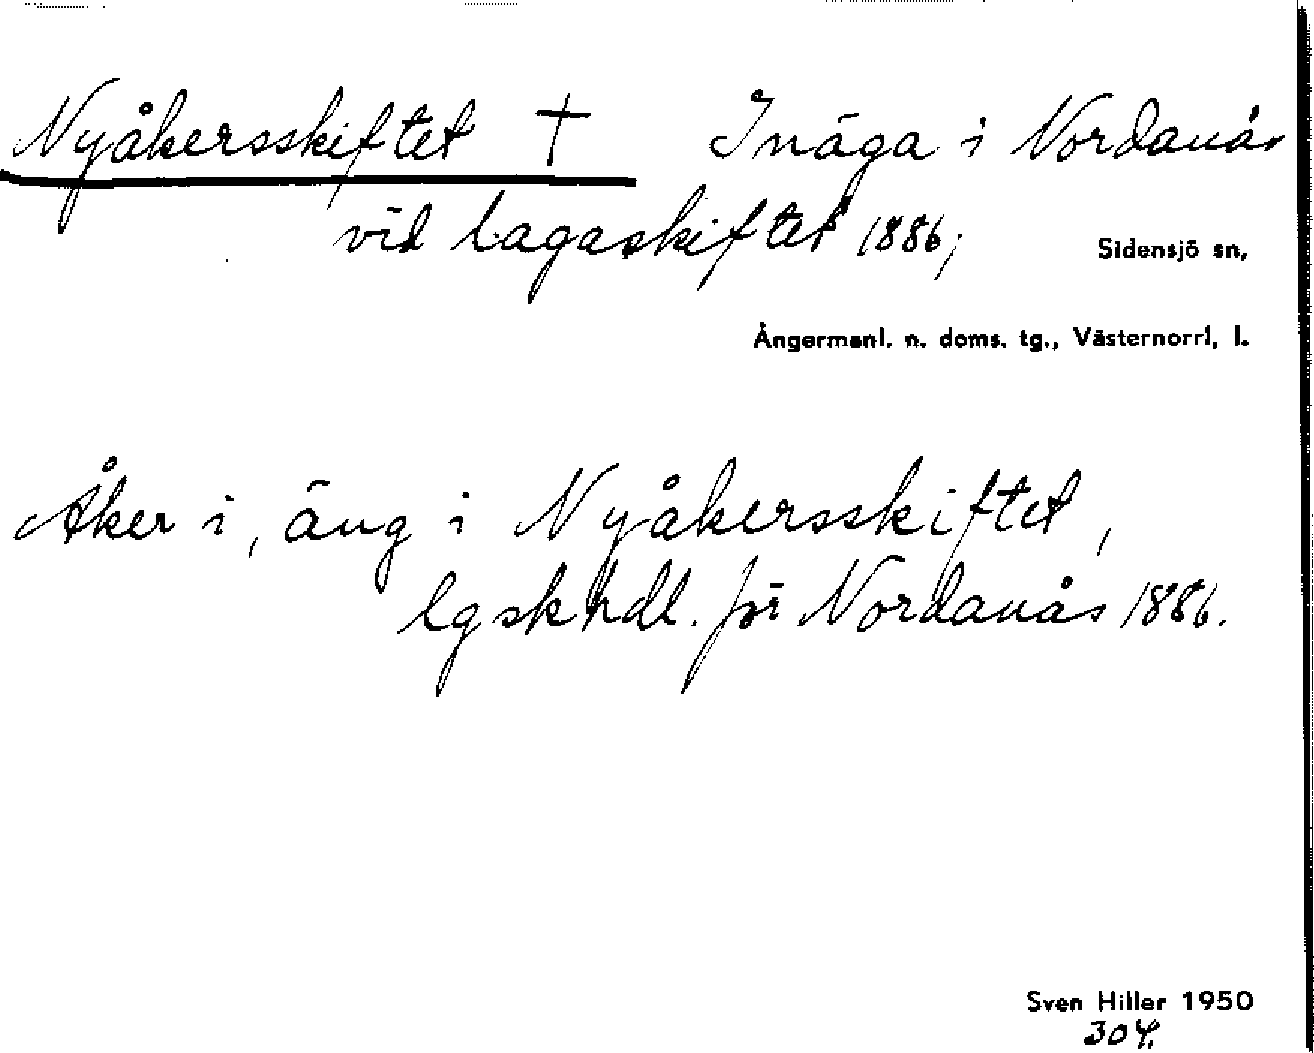 Nyåkersskiftet † Inäga i Nordanås
vid lagaskiftet 1886;
Sidensjö sn,
Ångermanl. n. doms. tg., Västernorrl, l.
Åker i, äng i Nyåkersskiftet,
lgskhdl. för Nordanås 1886.
Sven Hiller 1950
304.